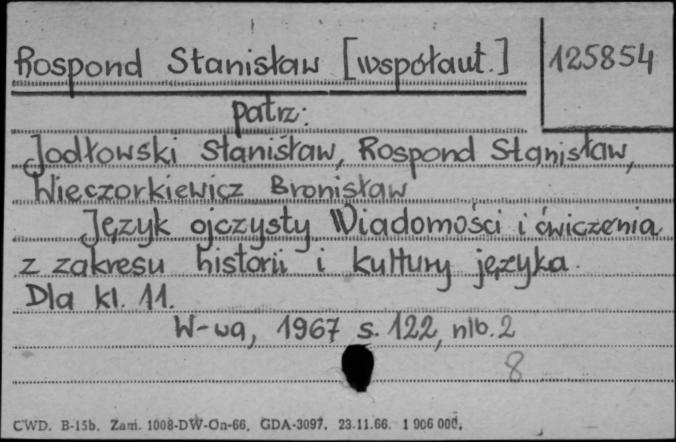 Rospond Stanisław [współaut.] 125854
patrz:
Jodłowski Stanisław, Rospond Stanisław,
Wieczorkiewicz Bronisław
Język ojczysty Wiadomości i ćwiczenia
z zakresu historii i kultury języka.
Dla kl. 11.
W-wa, 1967 s. 122, nlb. 2
8
CWD. B-15b. Zam. 1008-DW-On-66. GDA-3097. 23.11.66. 1 906 000.